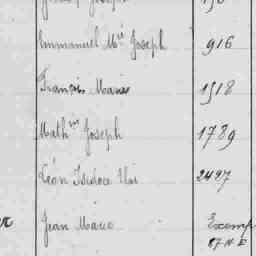 Joseph
Emmanuel Mie Joseph 916
François Marie 1518
Mathin Joseph 1789
Léon Isidore 2497
Jean Marie Exemp
17 N E